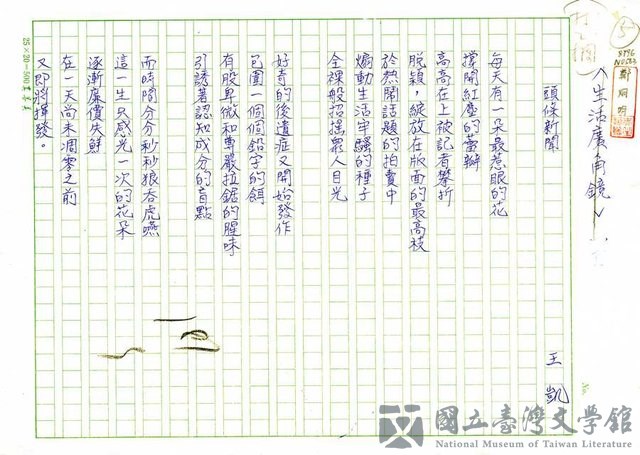 〈生活廣角鏡〉
頭條新聞
王凱
每天有一朵最惹眼的花
撐開紅塵的蕾瓣
高高在上被記者攀折
脫穎,綻放在版面的最高枝
於熱鬧話題的拍賣中
煽動生活牢騷的種子
全裸般招搖眾人目光
好奇的後遺症又開始發作
包圍一個個鉛字的餌
有股卑微和尊嚴拉鋸的腥味
引誘著認知成分的盲點
而時間分分秒秒狼吞虎嚥
這一生只感光一次的花朵
逐漸廉價失鮮
在一天尚未凋零之前
又即將揮發。
5
25×20=500
國立臺灣文學館
National Museum of Taiwan Literature